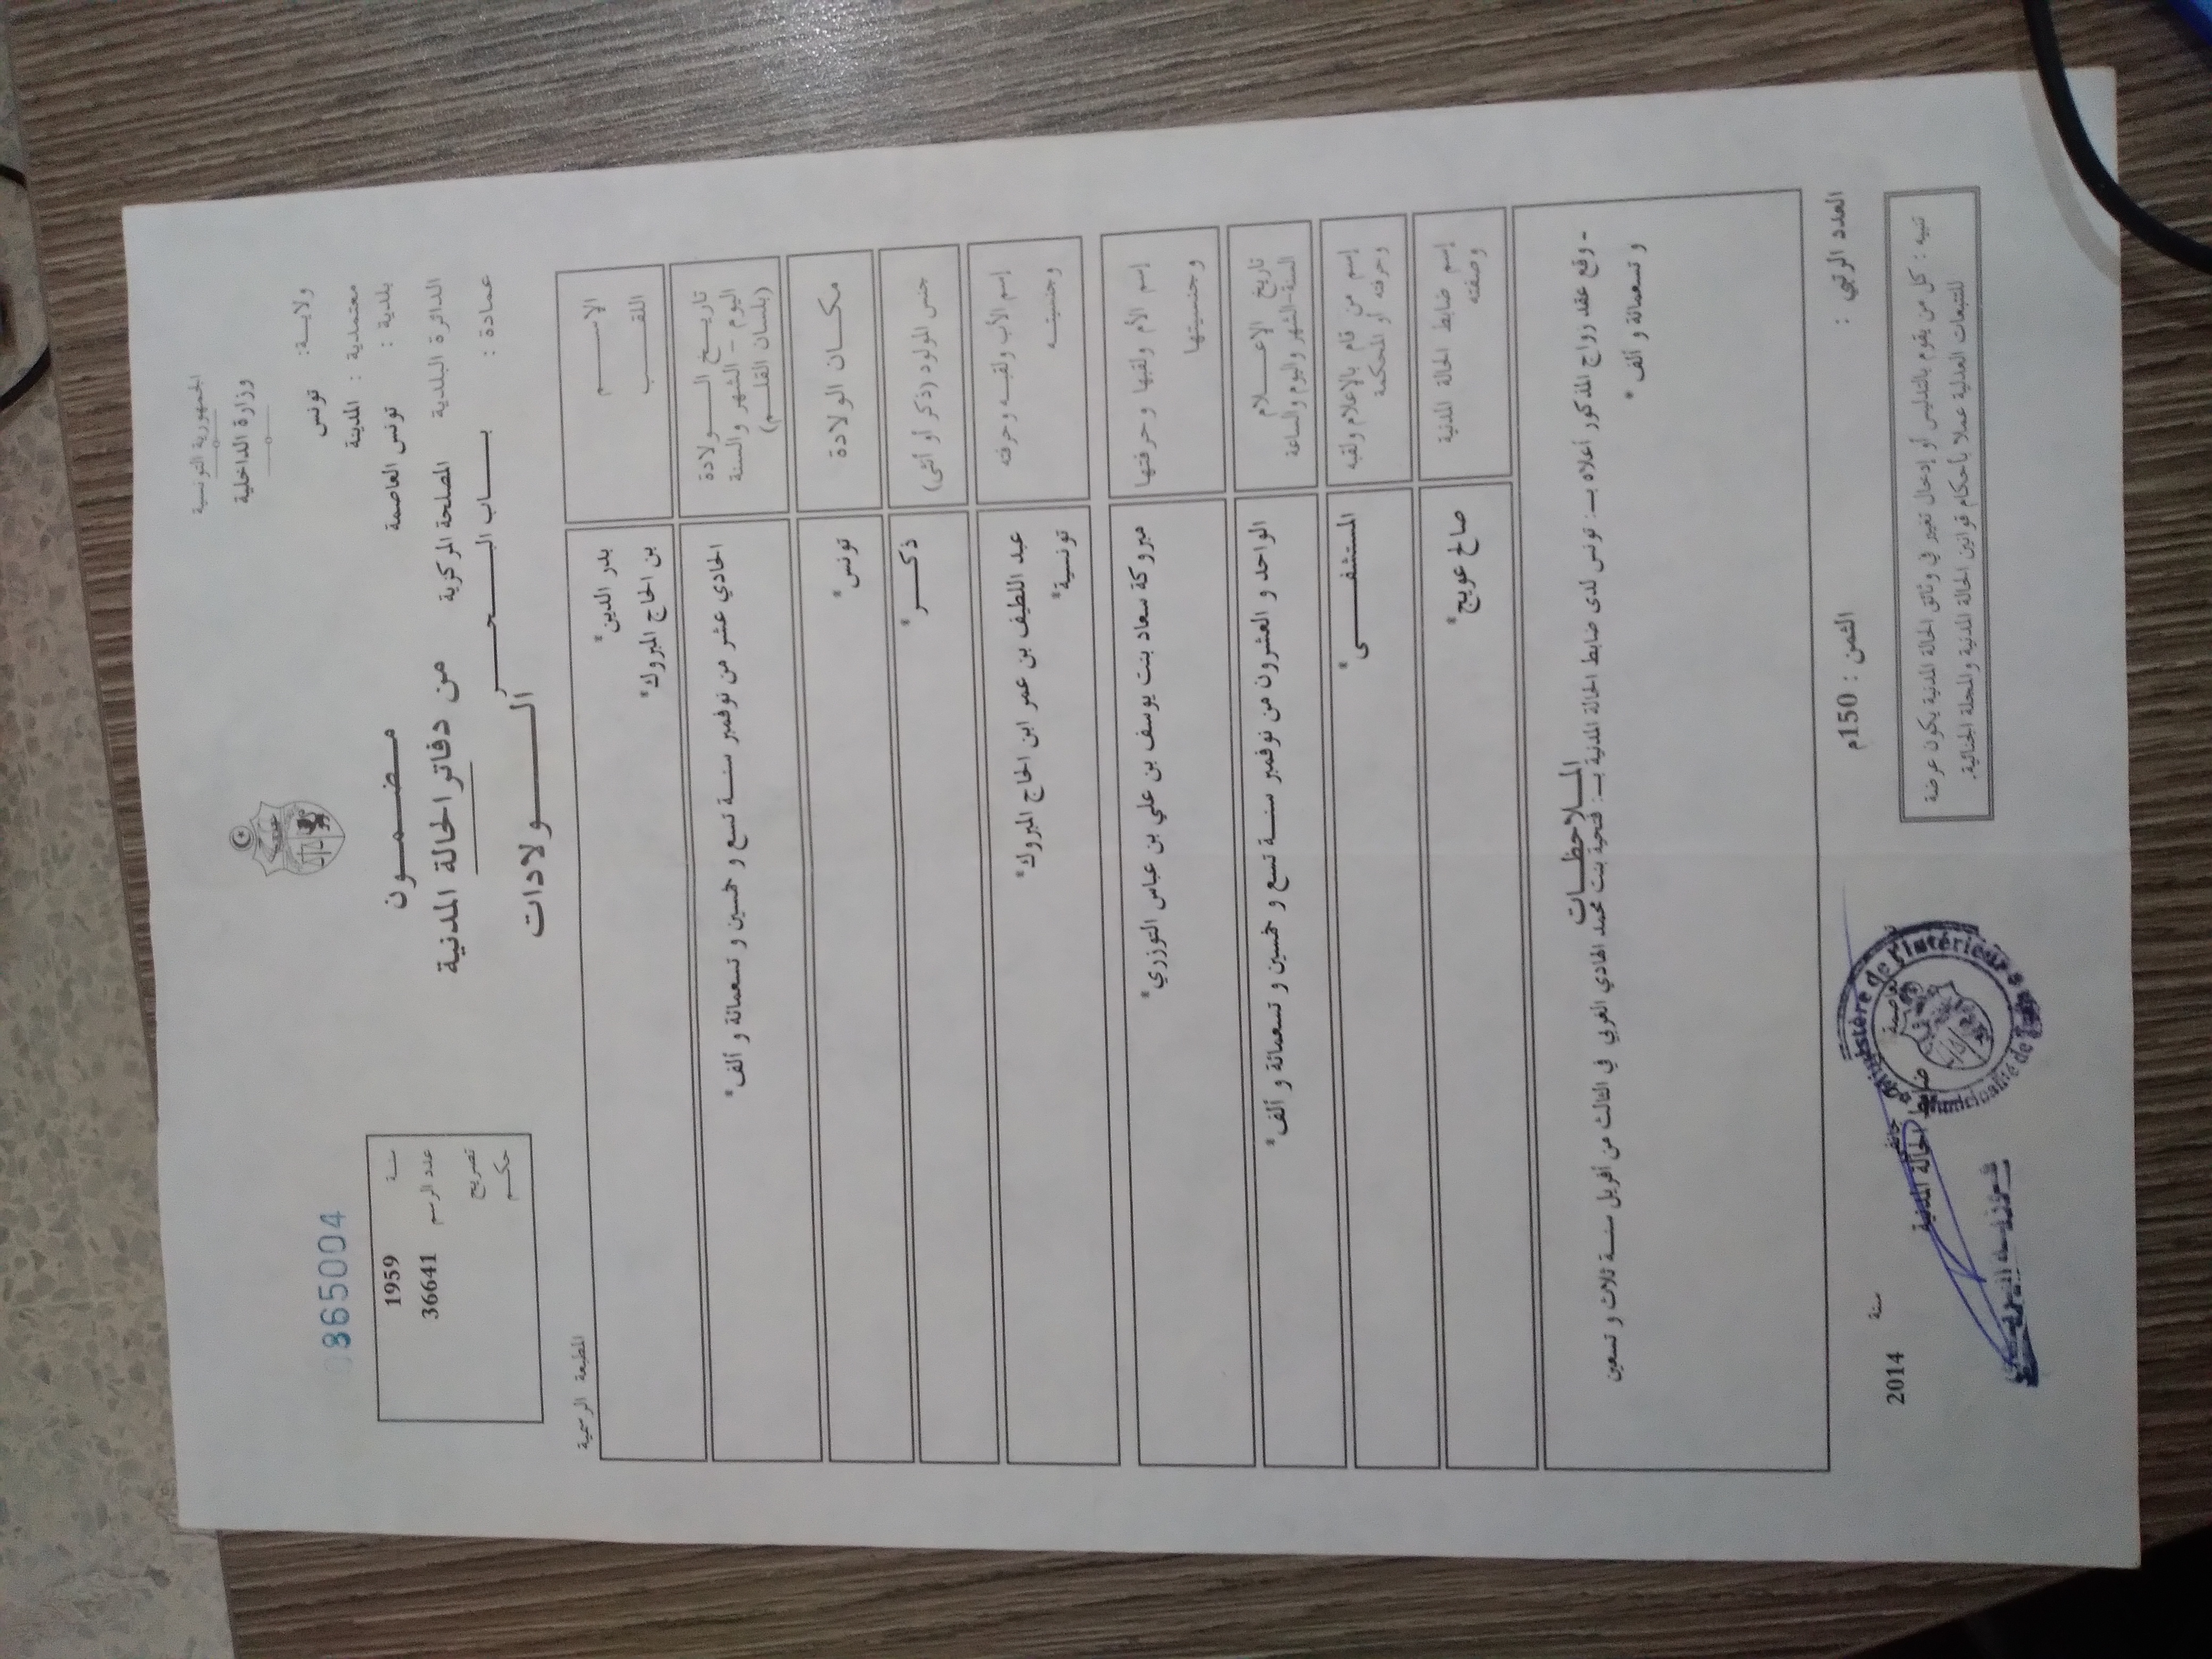 الجمهورية التونسية
وزارة الداخلية
ولاية: تونس
معتمدية : المدينة
بلدية : تونس العاصمة
الدائرة البلدية المصلحة المركزية
عمادة : بـــاب البـــحـــر
مـضـمـون
من دفاتر الحالة المدنية
الـــولادات
865004
سنة 1959
عدد الرسم 36641
تصريح
حكم
المطبعة الرسمية
الإســـم بدر الدين*
اللقـــب بن الحاج المبروك*
تاريـــخ الـــولادة
اليوم - الشهر والسنة
(بلسان القلـم)
الحادي عشر من نوفمبر سنـة تسع و خمسين و تسعمائة و ألف*
مكـــان الولادة تونس*
جنس المولود (ذكر أو أنثى) ذكـــر*
إسم الأب ولقبـه وحرفته عبد اللطيف بن عمر ابن الحاج المبروك*
وجنسيتـه تونسية*
إسم الأم ولقبها وحرفتها مبروكة سعاد بنت يوسف بن علي بن عباس التوزري*
وجنسيتها
تاريخ الإعـــلام
السنة-الشهر واليوم والساعة
الواحد و العشرون من نوفمبر سنـة تسع و خمسين و تسعمائة و ألف*
إسم من قام بالإعلام ولقبه
وحرفته أو المحكمة
المستشفـــى*
إسم ضابط الحالة المدنية
وصفته
صالح عويج*
المـلاحظـــات
- وقع عقد زواج المذكور أعلاه بـ: تونس لدى ضابط الحالة المدنية بـ: فتحية بنت محمد الهادي الغربي في الثالث من أفريل سنـة ثلاث و تسعين
و تسعمائة و ألف*
العدد الرتبي :
الثمن : 150م
سنة 2014
ضابط الحالة المدنية
Ministère de l'Intérieur
Municipalité de
تنبيه : كل من يقوم بالتدليس أو إدخال تغيير في وثائق الحالة المدنية يكون عرضة
للتتبعات العدلية عملا بأحكام قوانين الحالة المدنية والمجلة الجنائية.